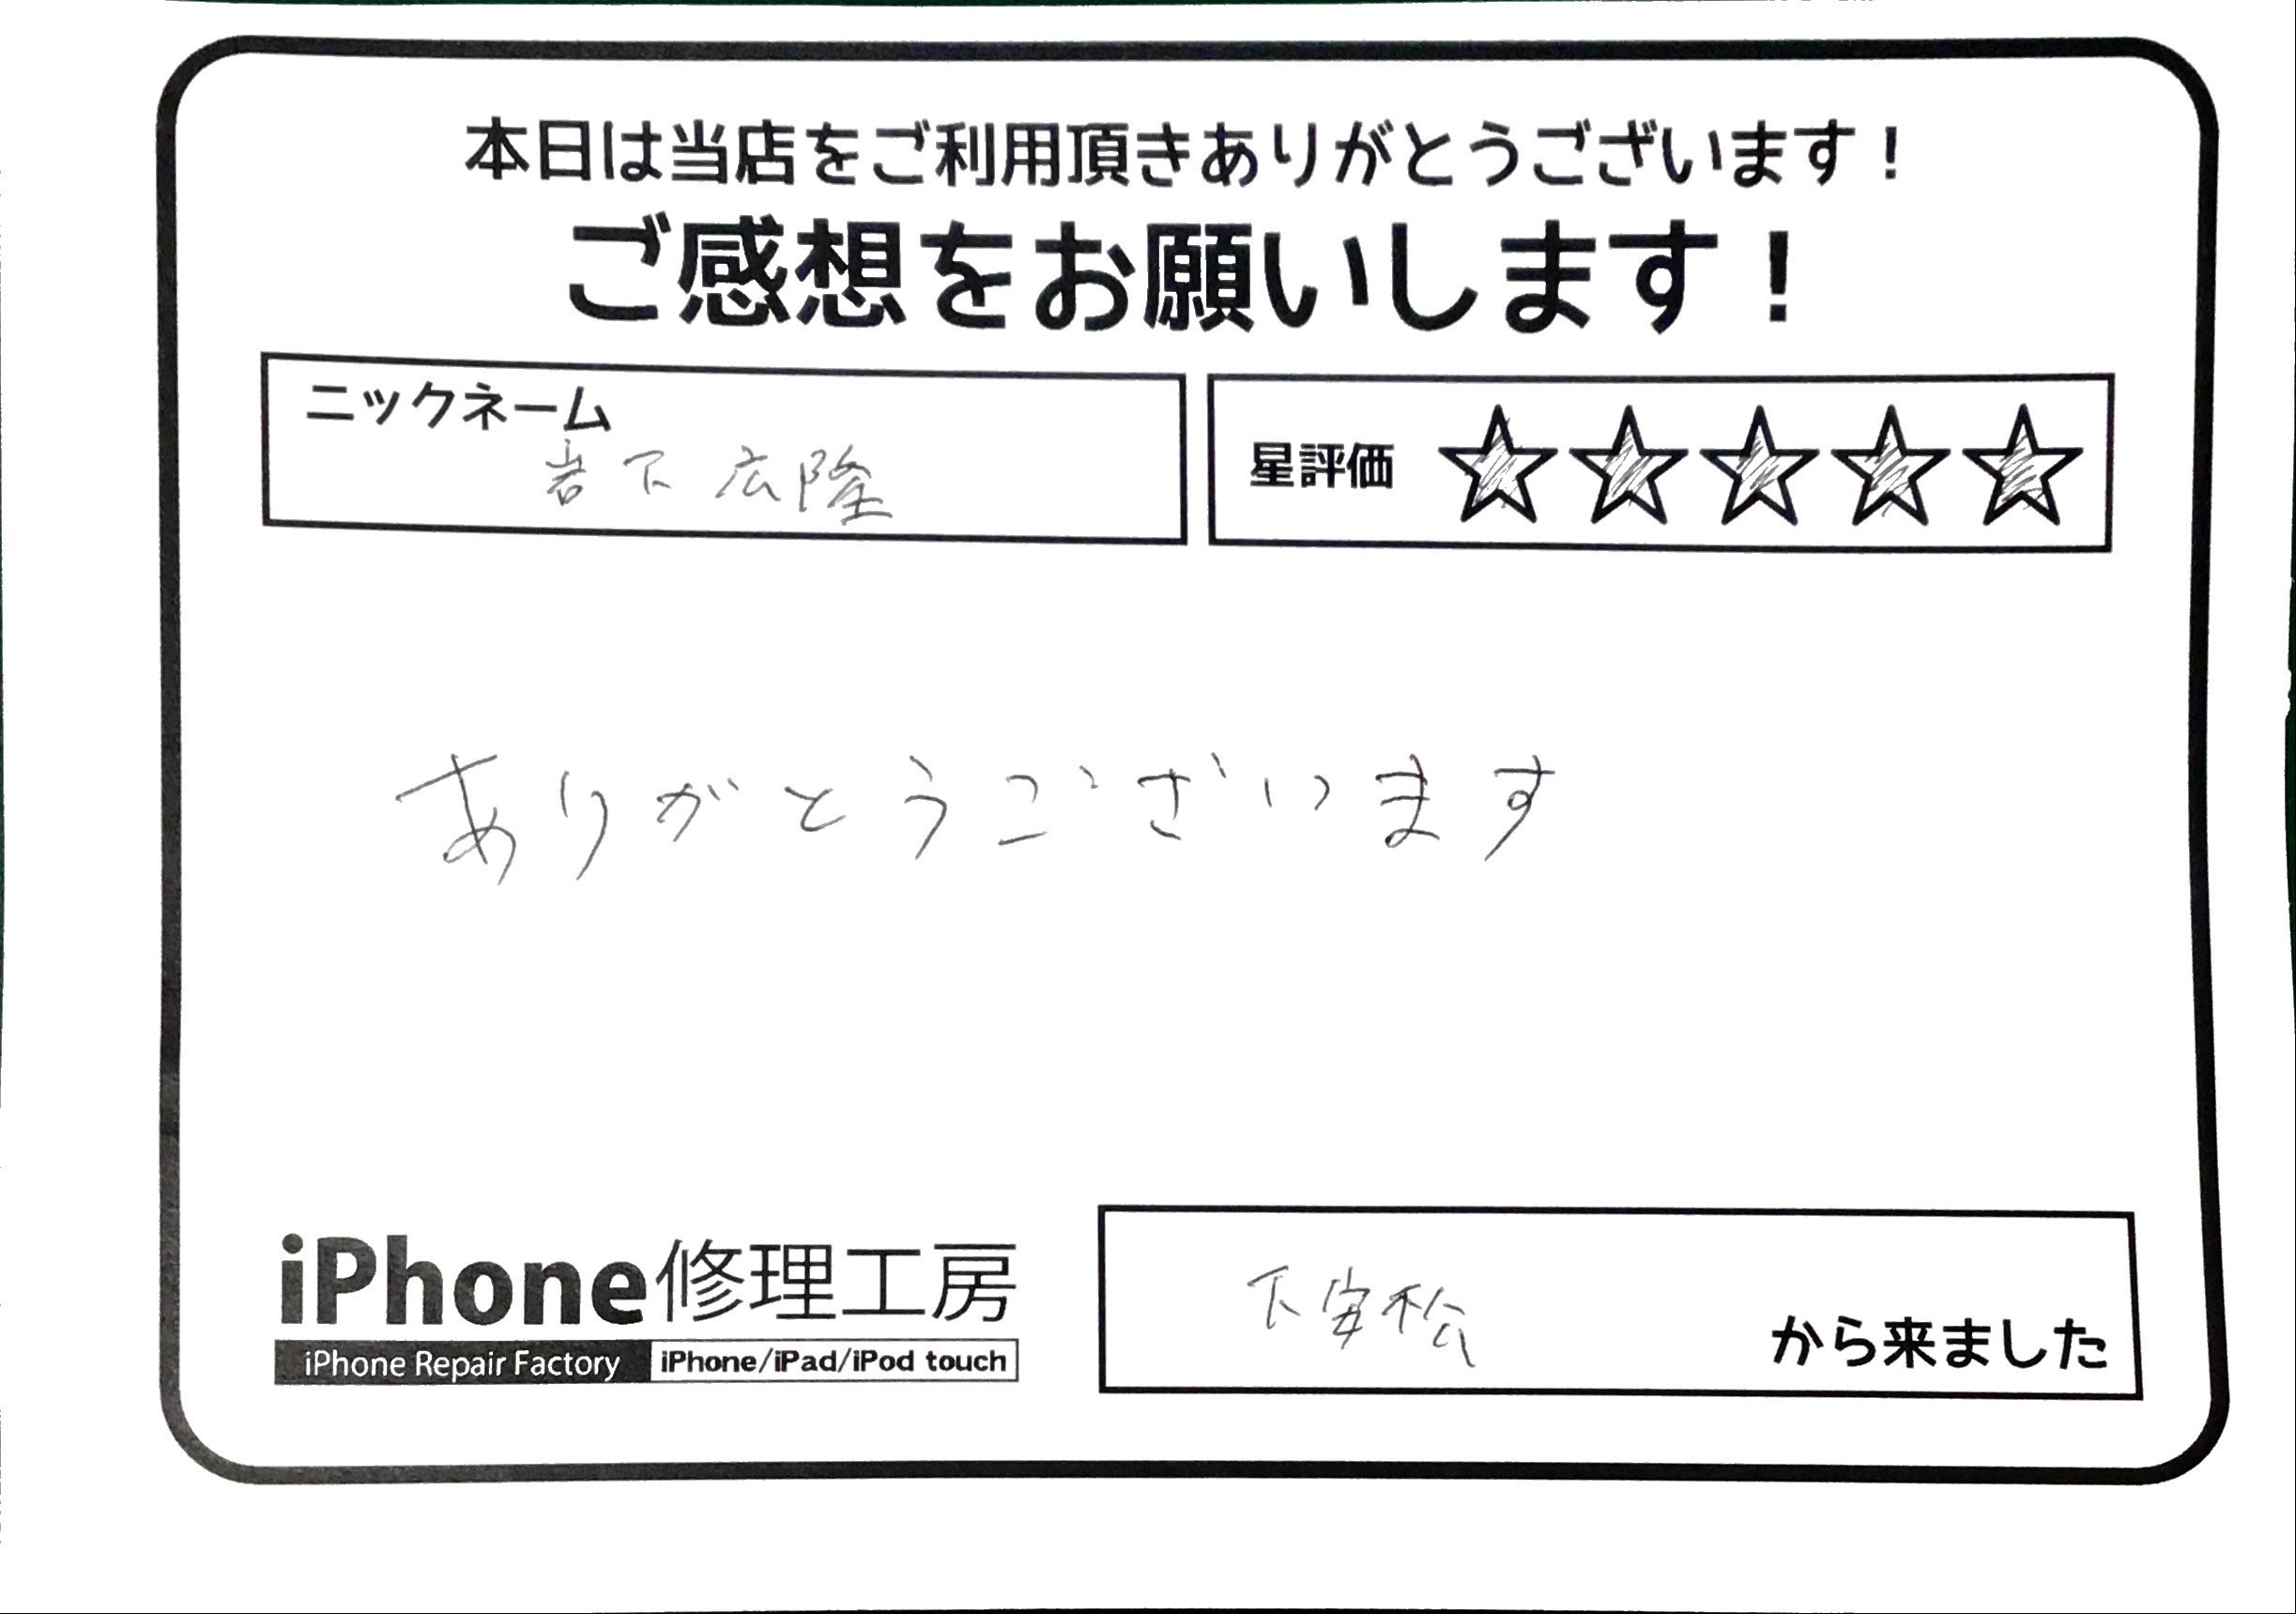 本日は当店をご利用頂きありがとうございます！
ご感想をお願いします！
ニックネーム
岩下 広隆
星評価 ☆☆☆☆☆
ありがとうございます
iPhone修理工房
iPhone Repair Factory iPhone/iPad/iPod touch
下安松 から来ました